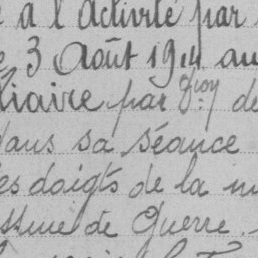 à l'activité par
3 Août 1914 au
liaire par
dans sa séance
es doigts de la
de Guerre.